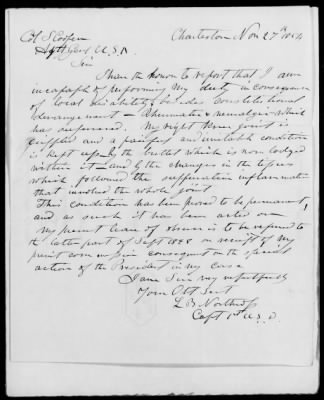 Charleston Nov 27th 1854
Col S Cooper
Adjt Genl U.S.A.
Sir
I have the honor to report that I am
incapable of performing my duty in consequence
of local disability & besides constitutional
derangement - Rheumatic & neuralgic which
has supervened. My right knee joint is
crippled and a painful and irritable condition
is kept up by the bullet which is now lodged
within it - and by the changes in the tissues
which followed the suppurative inflammation
that involved the whole joint
This condition has been proved to be permanent,
and as such it has been acted on -
my present leave of absence is to be referred to
the latter part of Sept on receipt of my
present commission consequent on the special
action of the President in my case
I am Sir very respectfully
Your Obt Servt
L. B. Northrop
Capt 1st U.S. D.